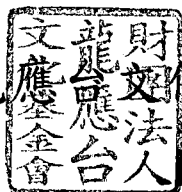 財團法人
龍應台
文基金會